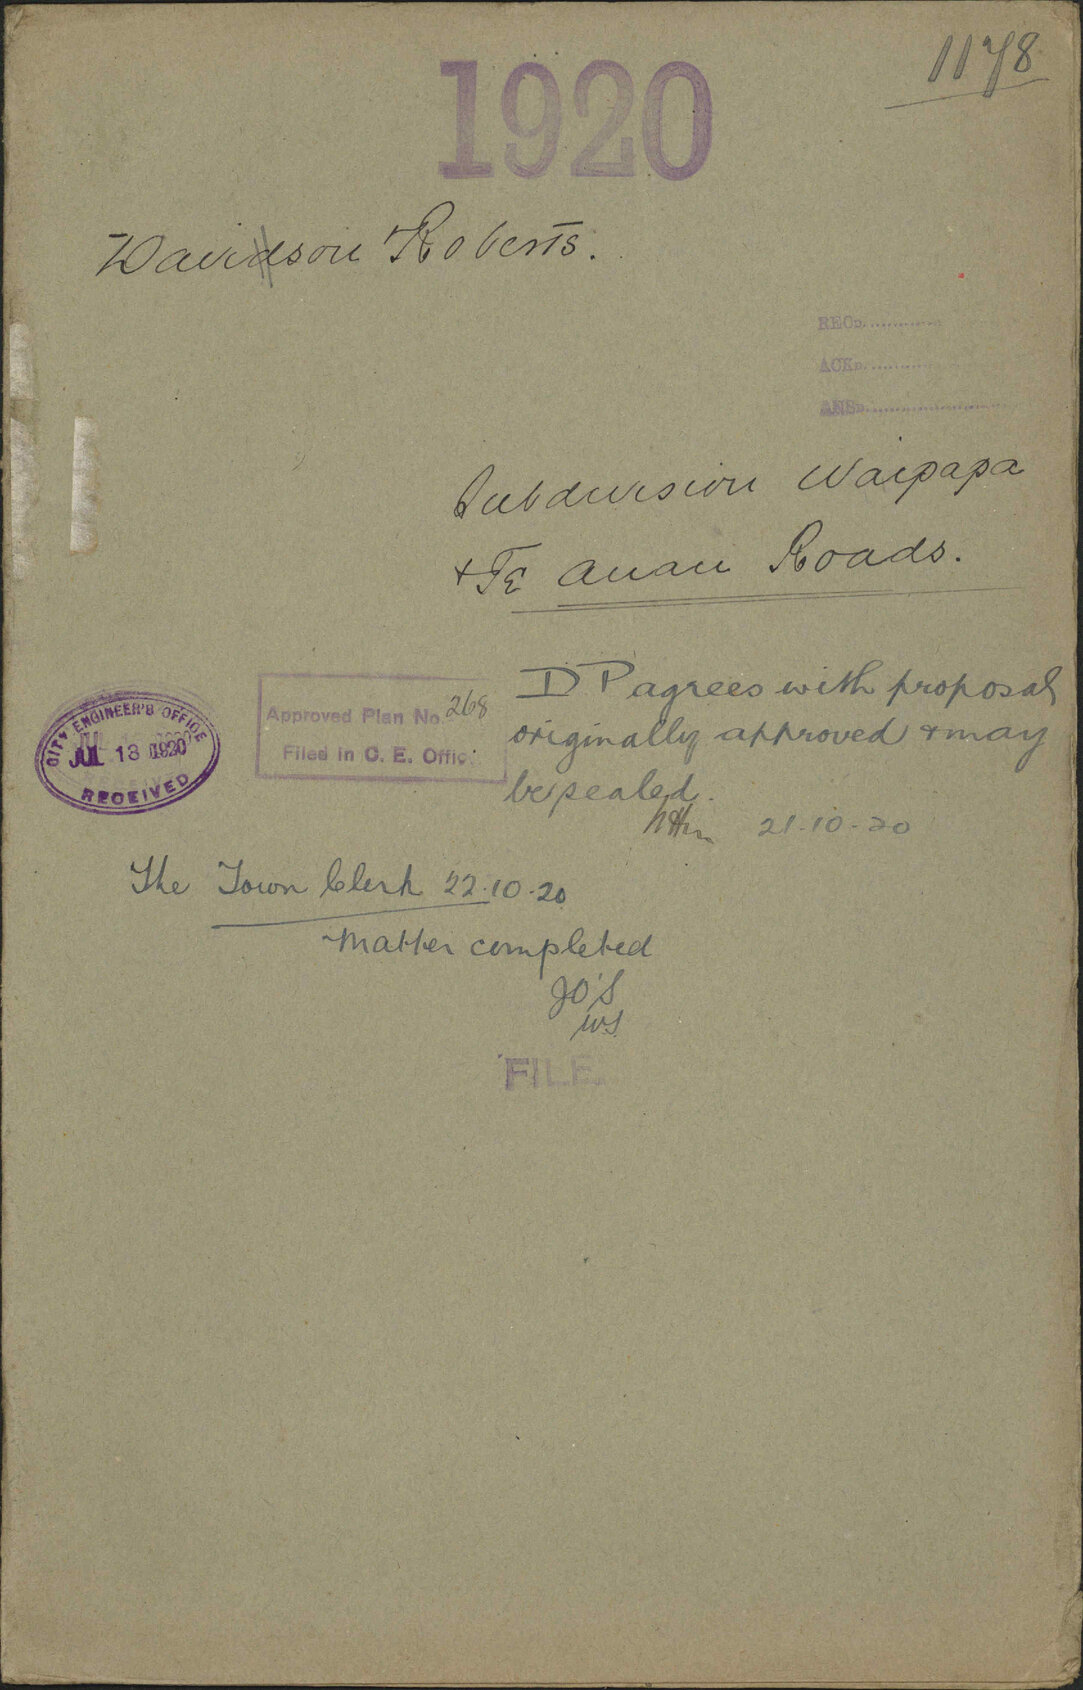 1178
1920
Davidson Roberts.
RECD.
ACKD.
ANSD.
Subdivision Waipapa
+ Te Anau Roads.
D P agrees with proposal
originally approved & may
be sealed.
21-10-20
Approved Plan No. 268
Filed in C. E. Offic
CITY ENGINEER'S OFFICE
JUL 13 1920
RECEIVED
The Town Clerk 22.10.20
Matter completed
JO'S
WS.
FILE